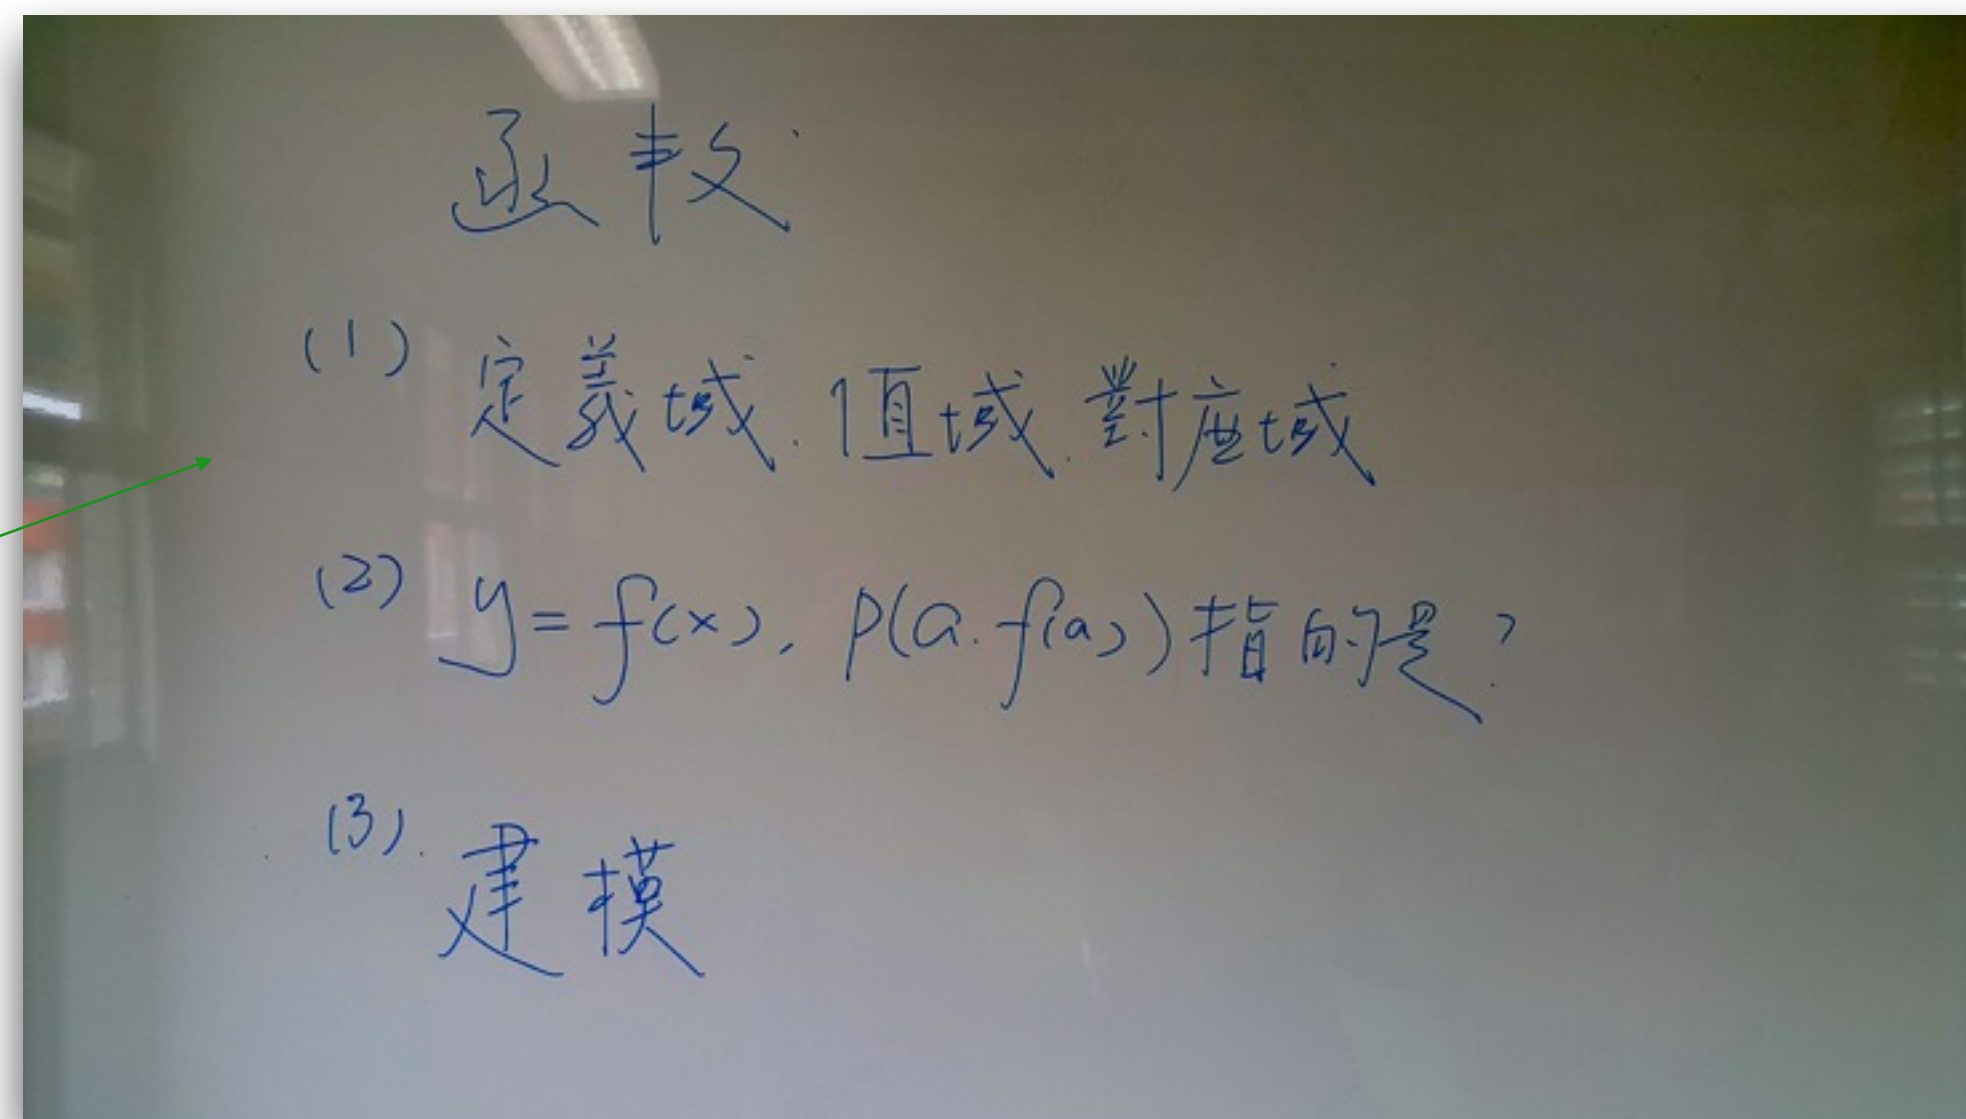 函数
(1) 定義域、值域、對应域
(2) y = f(x), P(a, f(a)) 指的是?
(3). 建模